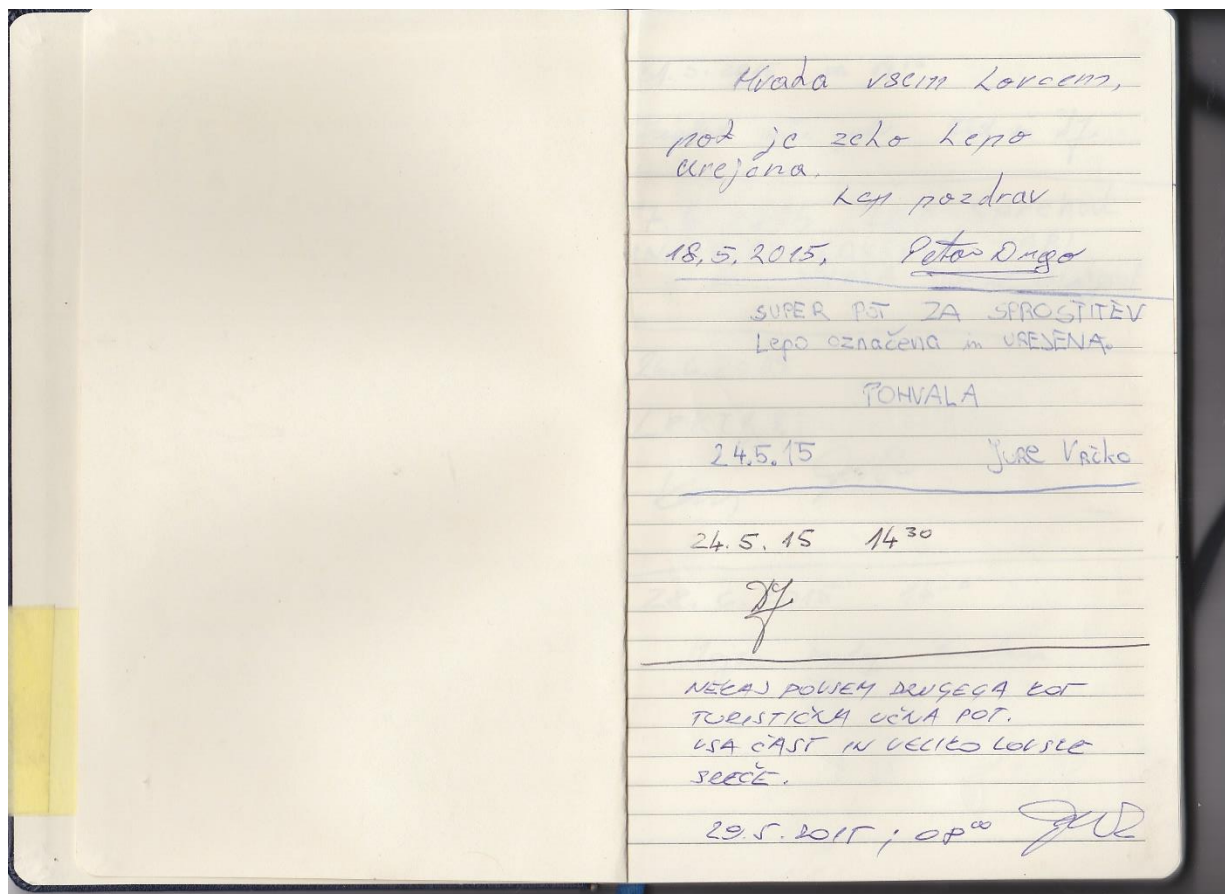 Hvala vsem Lovcem,
pot je zelo Lepo
urejena.
Lep pozdrav
18.5.2015, Petar Drgo
SUPER POT ZA SPROSTITEV
Lepo označena in UREJENA.
POHVALA
24.5.15 Jure Vrčko
24.5.15 14 30
NEKAJ POVSEM DRUGEGA KOT
TURISTIČNA UČNA POT.
VSA ČAST IN VELIKO LOVSKE
SREČE.
29.5.2015; 08 00